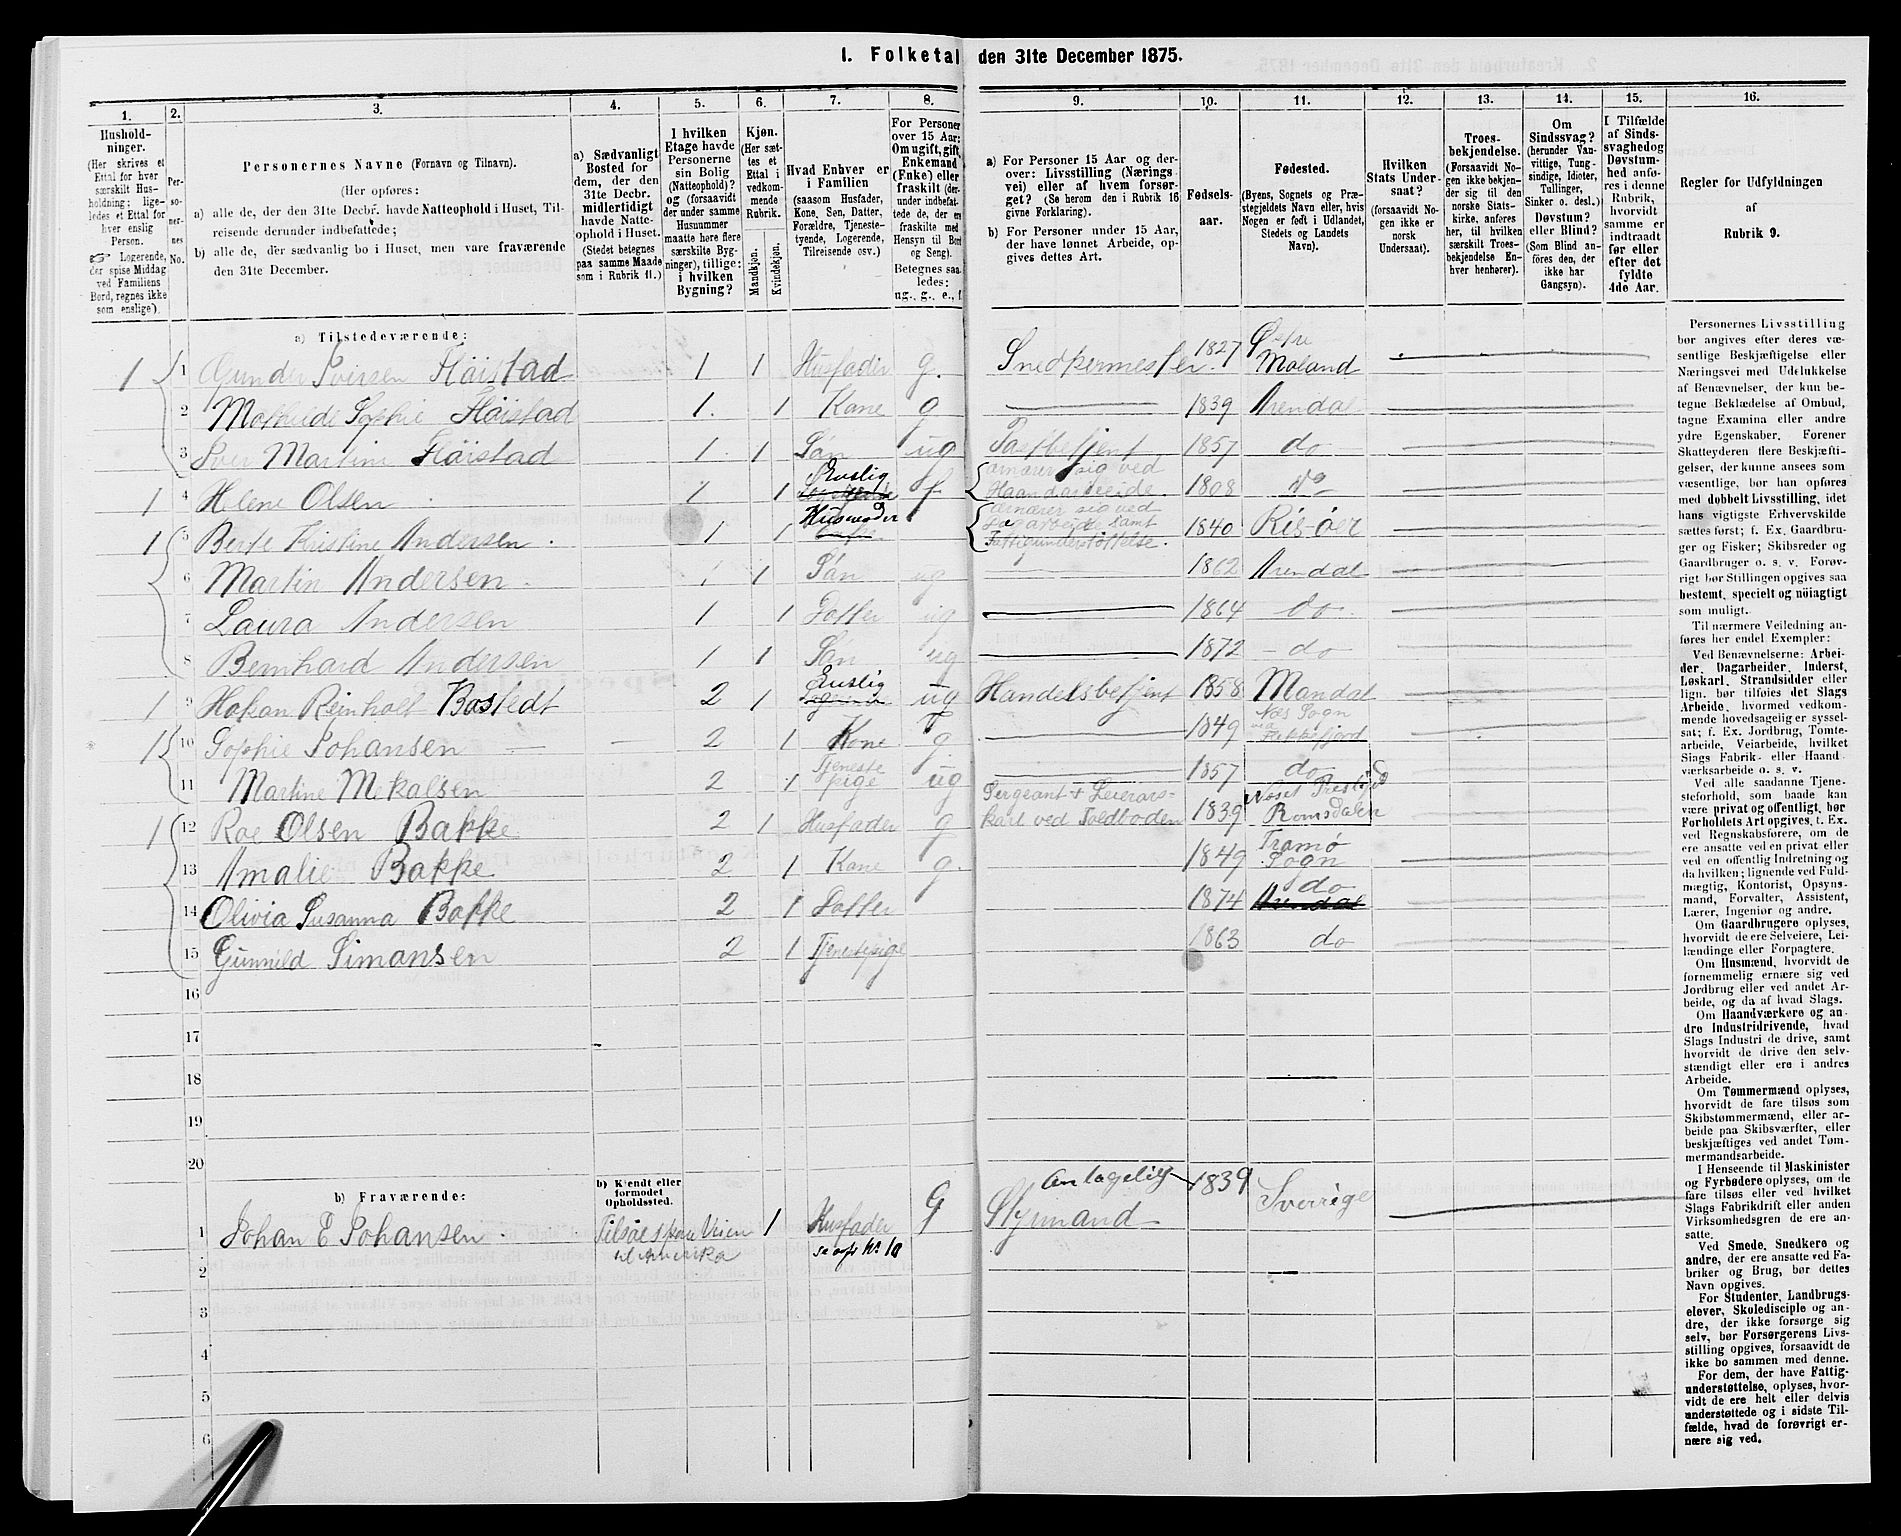 1. Folketal den 31te December 1875.
1. 2. 3. 4. 5. 6. 7. 8. 9. 10. 11. 12. 13. 14. 15. 16.
Hushold-
ninger.
(Her skrives et
Ettal for hver
særskilt Hus-
holdning; lige-
ledes et Ettal for
hver enslig
Person.
Logerende,
der spise Middag
ved Familiens
Bord, regnes ikke
som enslige).
Per-
so-
ner-
nes
No.
Personernes Navne (Fornavn og Tilnavn).
(Her opføres:
a) alle de, der den 31te Decbr. havde Natteophold i Huset, Til-
reisende derunder indbefattede;
b) alle de, der sædvanlig bo i Huset, men vare fraværende
den 31te December.
a) Sædvanligt
Bosted for
dem, der den
31te Decbr.
midlertidigt
havde Natte-
ophold i Huset.
(Stedet betegnes
paa samme Maade
som i Rubrik 11.)
I hvilken
Etage havde
Personerne
sin Bolig
(Natteophold)?
og (forsaavidt
der under samme
Husnummer
maatte høre flere
særskilte Byg-
ninger), tillige:
i hvilken
Bygning?
Kjøn.
(Her sæt-
tes et
Ettal i
vedkom-
mende
Rubrik.
Mandkjøn.
Kvindekjøn.
Hvad Enhver er
i Familien
(saasom Husfader,
Kone, Søn, Datter,
Forældre, Tjeneste-
tyende, Logerende,
Tilreisende osv.)
For Personer
over 15 Aar:
Om ugift, gift,
Enkemand
(Enke) eller
fraskilt (der-
under indbefat-
tede de, der ere
fraskilte med
Hensyn til Bord
og Seng).
Betegnes saa-
ledes:
ug., g., e., f.
a) For Personer 15 Aar og der-
over: Livsstilling (Nærings-
vei) eller af hvem forsør-
get? (Se herom den i Rubrik 16
givne Forklaring).
b) For Personer under 15 Aar,
der have lønnet Arbeide, op-
gives dettes Art.
Fødsels-
aar.
Fødested.
(Byens, Sognets og Præ-
stegjeldets Navn eller, hvis
Nogen er født i Udlandet,
Stedets og Landets
Navn).
Hvilken
Stats Under-
saat?
(forsaavidt No-
gen ikke er
norsk
Undersaat).
Troes-
bekjendelse.
(Forsaavidt No-
gen ikke bekjen-
der sig til den
norske Stats-
kirke, anføres
her, til hvilken
særskilt Troes-
bekjendelse En-
hver henhører).
Om
Sindssvag?
(herunder Van-
vittige, Tung-
sindige, Idioter,
Tullinger,
Sinker o. desl.)
Døvstum?
eller Blind?
(Som Blind an-
føres den, der
ikke har
Gangsyn).
I Tilfælde
af Sinds-
svaghed og
Døvstum-
hed anfø-
res i denne
Rubrik,
hvorvidt
samme er
indtraadt
før eller
efter det
fyldte
4de Aar.
Regler for Udfyldningen
af
Rubrik 9.
a) Tilstedeværende:
1 1 Gunder Iversen Fløistad 1 1 Husfader g. Snedkermester. 1827 Østre Moland
2 Mathilde Sophie Fløistad 1. 1 Kone g 1839 Arendal
3 Iver Martini Fløistad 1. 1 Søn ug Postbetjent 1857 do
1 4 Helene Olsen 1 1 Enslig f ernærer sig ved Haandarbeide. 1808 Do
1 5 Berte Kristine Andersen. 1 1 Husmoder ernærer sig ved Dagarbeide samt Fattigunderstøttelse. 1840 Risøer
6 Martin Andersen. 1 1 Søn ug 1862 Arendal
7 Laura Andersen 1 1 Dotter ug 1864 do.
8 Bernhard Andersen 1 1 Søn ug 1872 do
1 9 Hakan Reinholt Bostedt 2 1 Enslig ug Handelsbetjent 1858 Mandal
1 10 Sophie Johansen 2 1 Kone g 1849 Næs Sogn via Flekkefjord
11 Martine Mikalsen 2 1 Tjeneste pige ug 1857 do
1 12 Roe Olsen Bakke 2 1 Husfader g Sergeant + Leierars- karl ved Toldboden 1839 Næset Præstgjd Romsdalen
13 Amalie Bakke 2 1 Kone g. 1849 Tromø Sogn
14 Olivia Susanna Bakke 2 1 Dotter 1874 do Arendal
15 Gunnild Simonsen 2 1 Tjenestepige 1863 do
16
17
18
19
20
b) Fraværende:
b) Kjendt eller
formodet
Opholdssted.
1 Johan E Johansen. Tilsøes fra Wien til Amerika 1 Husfader se opf No 10 G Styrmand antagelig 1839 Sverrige
2
3
4
5
6
Personernes Livsstilling
bør angives efter deres væ-
sentlige Beskjæftigelse eller
Næringsvei med Udelukkelse
af Benævnelser, der kun be-
tegne Beklædelse af Ombud,
tagne Examina eller andre
ydre Egenskaber. Forener
Skatteyderen flere Beskjæfti-
gelser, der kunne ansees som
væsentlige, bør han opføres
med dobbelt Livsstilling, idet
hans vigtigste Erhvervskilde
sættes først; f. Ex. Gaardbru-
ger og Fisker; Skibsreder og
Gaardbruger o. s. v. Forøv-
rigt bør Stillingen opgives saa
bestemt, specielt og nöiagtigt
som muligt.
Til nærmere Veiledning an-
føres her endel Exempler:
Ved Benævnelserne: Arbei-
der, Dagarbeider, Inderst,
Løskarl, Strandsidder eller
lign. bør tilføies det Slags
Arbeide, hvormed vedkom-
mende hovedsagelig er syssel-
sat; f. Ex. Jordbrug, Tomte-
arbeide, Veiarbeide, hvilket
Slags Fabrik- eller Haand-
værksarbeide o. s. v.
Ved alle saadanne Tjene-
steforhold, som baade kan
være privat og offentligt, bør
Forholdets Art opgives, t. Ex.
ved Regnskabsførere, om de
ere ansatte ved en privat eller
ved en offentlig Indretning og
da hvilken; lignende ved Fuld-
mægtig, Kontorist, Opsyns-
mand, Forvalter, Assistent,
Lærer, Ingeniør og andre.
Om Gaardbrugere oplyses,
hvorvidt de ere Selveiere, Lei-
lændinge eller Forpagtere.
Om Husmænd, hvorvidt de
fornemmelig ernære sig ved
Jordbrug eller ved andet Ar-
beide, og da af hvad Slags.
Om Haandværkere og an-
dre Industridrivende, hvad
Slags Industri de drive, samt
hvorvidt de drive den selv-
stændigt eller ere i andres
Arbeide.
Om Tømmermænd oplyses,
hvorvidt de fare tilsøs som
Skibstømmermænd, eller ar-
beide paa Skibsværfter, eller
beskjæftiges ved andet Tøm-
mermandsarbeide.
I Henseende til Maskinister
og Fyrbødere oplyses, om de
fare tilsøs eller ved hvilket
Slags Fabrikdrift eller anden
Virksomhedsgren de ere an-
satte.
Ved Smede, Snedkere og
andre, der ere ansatte ved Fa-
briker og Brug, bør dettes
Navn opgives.
For Studenter, Landbrugs-
elever, Skoledisciple og an-
dre, der ikke forsørge sig
selv, bør Forsørgerens Livs-
stilling opgives, forsaavidt de
ikke bo sammen med denne.
For dem, der have Fattig-
understøttelse, oplyses, hvor-
vidt de ere helt eller delvis
understøttede og i sidste Til-
fælde, hvad de forøvrigt er-
nære sig ved.